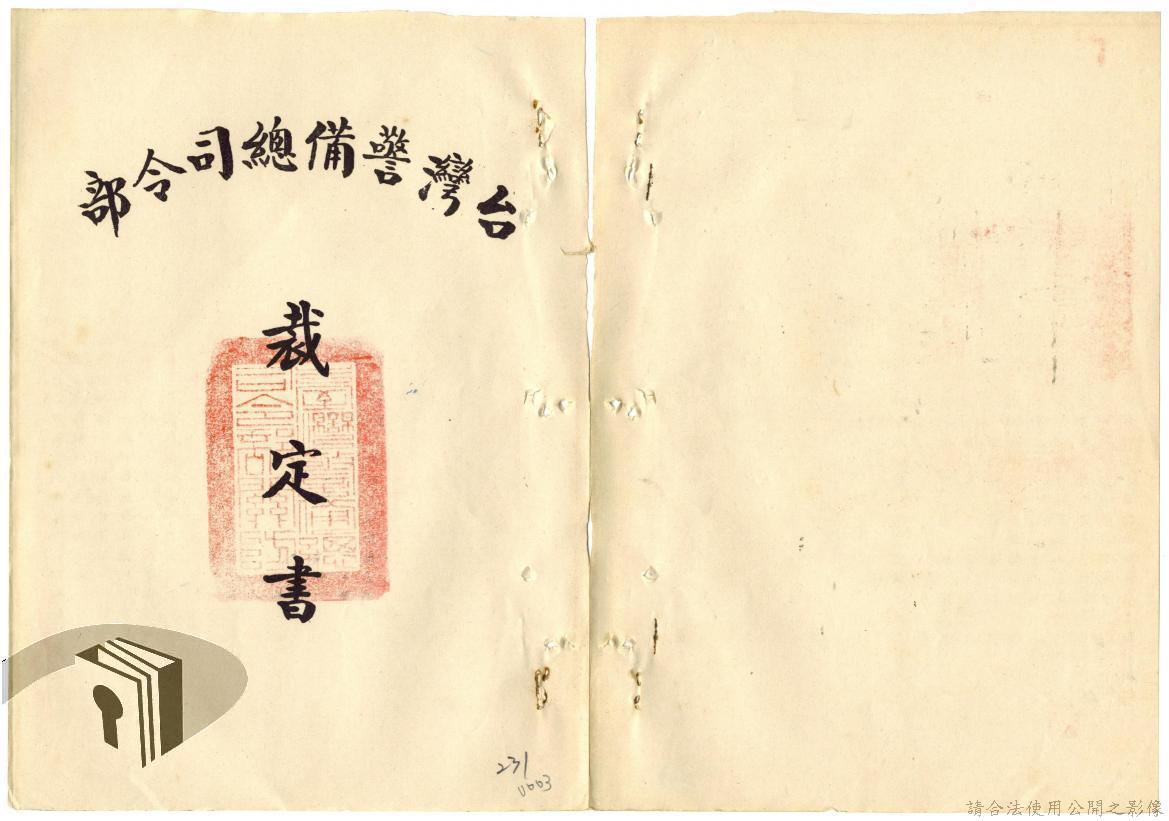 台灣警備總司令部
裁定書
231
0003
請合法使用公開之影像